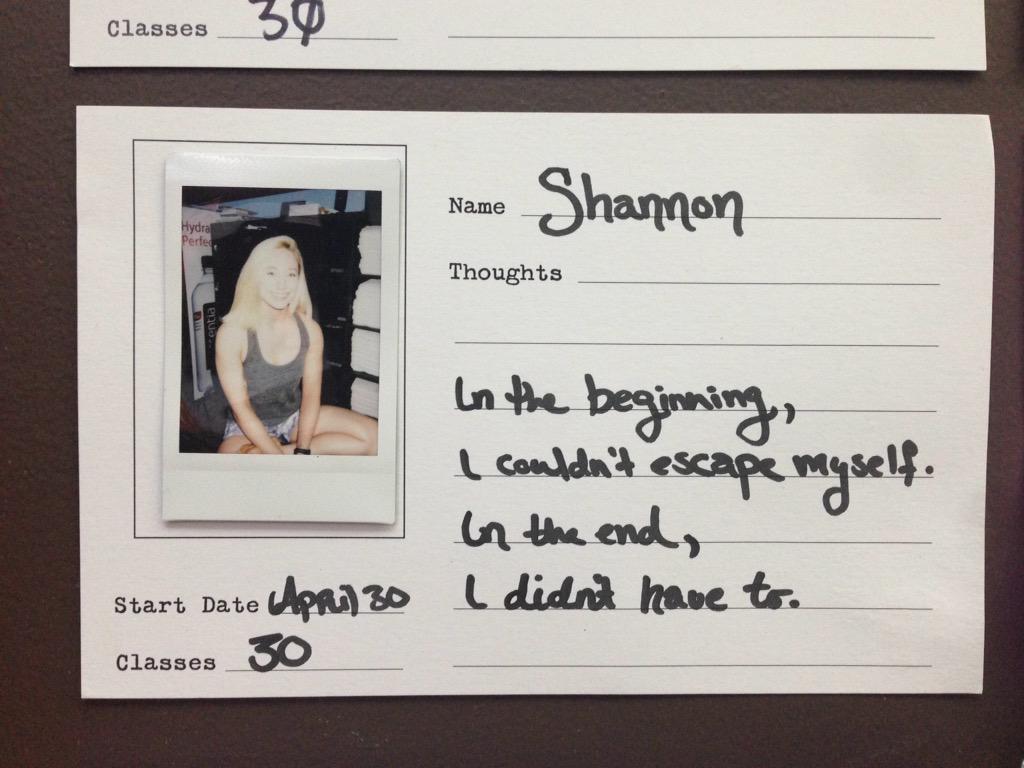 Classes 30
Hydra
Perfec
entia
Name Shannon
Thoughts
In the beginning,
I couldn't escape myself.
In the end,
I didn't have to.
Start Date April 30
Classes 30